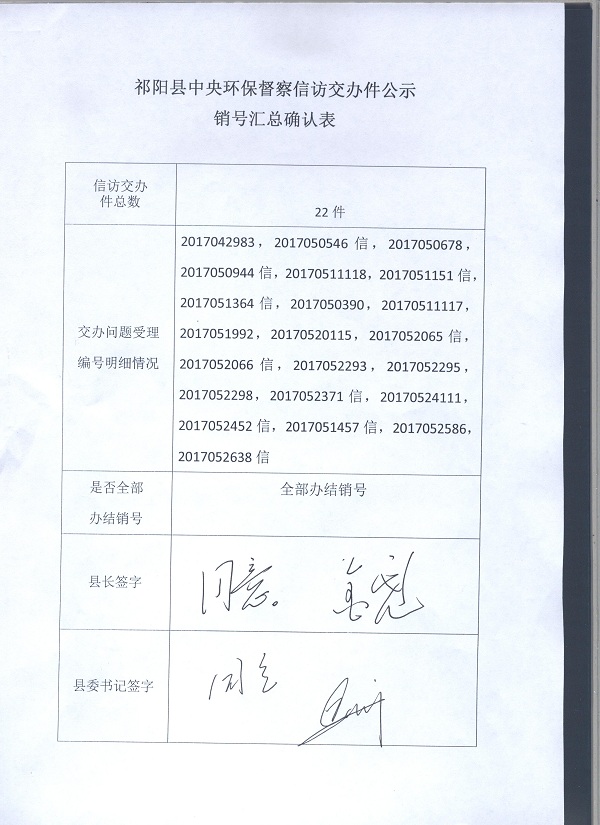 祁阳县中央环保督察信访交办件公示
销号汇总确认表
信访交办
件总数
22 件
交办问题受理
编号明细情况
2017042983，2017050546 信，2017050678，
2017050944 信，20170511118，2017051151 信，
2017051364 信，2017050390，20170511117，
2017051992，20170520115，2017052065 信，
2017052066 信，2017052293，2017052295，
2017052298，2017052371 信，20170524111，
2017052452 信，2017051457 信，2017052586，
2017052638 信
是否全部
办结销号
全部办结销号
县长签字
同意。
县委书记签字
同意